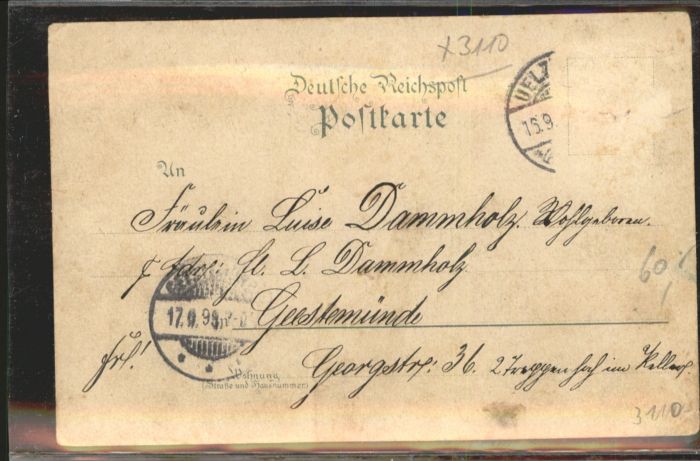 x3110
Deutsche Reichspost
Postkarte
UELZ
15.9.
An
Fräulein Luise Dammholz. Wohlgeboren.
Adr: H. L. Dammholz
60,
17.9.99
Geestemünde
Frl! Georgstr: 36. 2 Treppen hoch im Keller
Wohnung
(Straße und Hausnummer)
3110